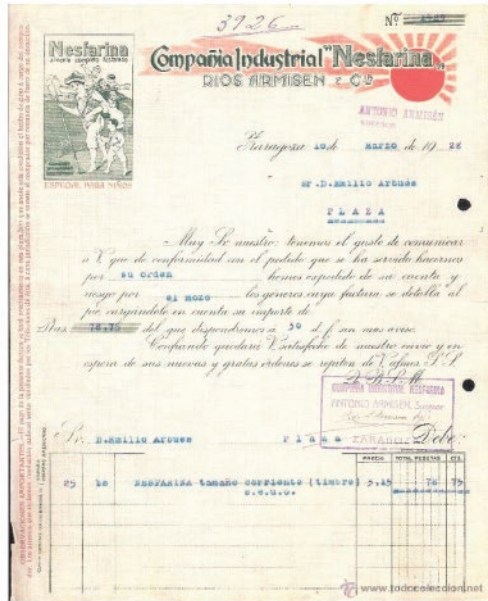 3926
Nº
Nesfarina
Compañia Industrial "Nesfarina"
RIOS ARMISEN y Cía
ANTONIO ARMISÉN
ESPECIAL PARA NIÑOS
Zaragoza 10 de Marzo de 1928
Sr. D. Emilio Arbués
PLAZA
Muy Sr. nuestro: tenemos el gusto de comunicar
a V. que de conformidad con el pedido que se ha servido hacernos
por su orden hemos expedido de su cuenta y
riesgo por el mozo los géneros cuya factura se detalla al
pie, cargándole en cuenta su importe de
Ptas. 78,75 del que dispondremos a 30 d. f. sin mas aviso.
Confiando quedará V. satisfecho de nuestro envío y en
espera de sus nuevas y gratas órdenes se repiten de V. afmos. S. S.
COMPAÑIA INDUSTRIAL NESFARINA
ANTONIO ARMISEN, Sucesor
ZARAGOZA
D. Emilio Arbués Plaza Debe:
PRECIO TOTAL PESETAS CTS.
25 bs NESFARINA tamaño corriente (timbre) 3.15 78 75
s.e.u.o.
OBSERVACIONES IMPORTANTES.
www.todocoleccion.net